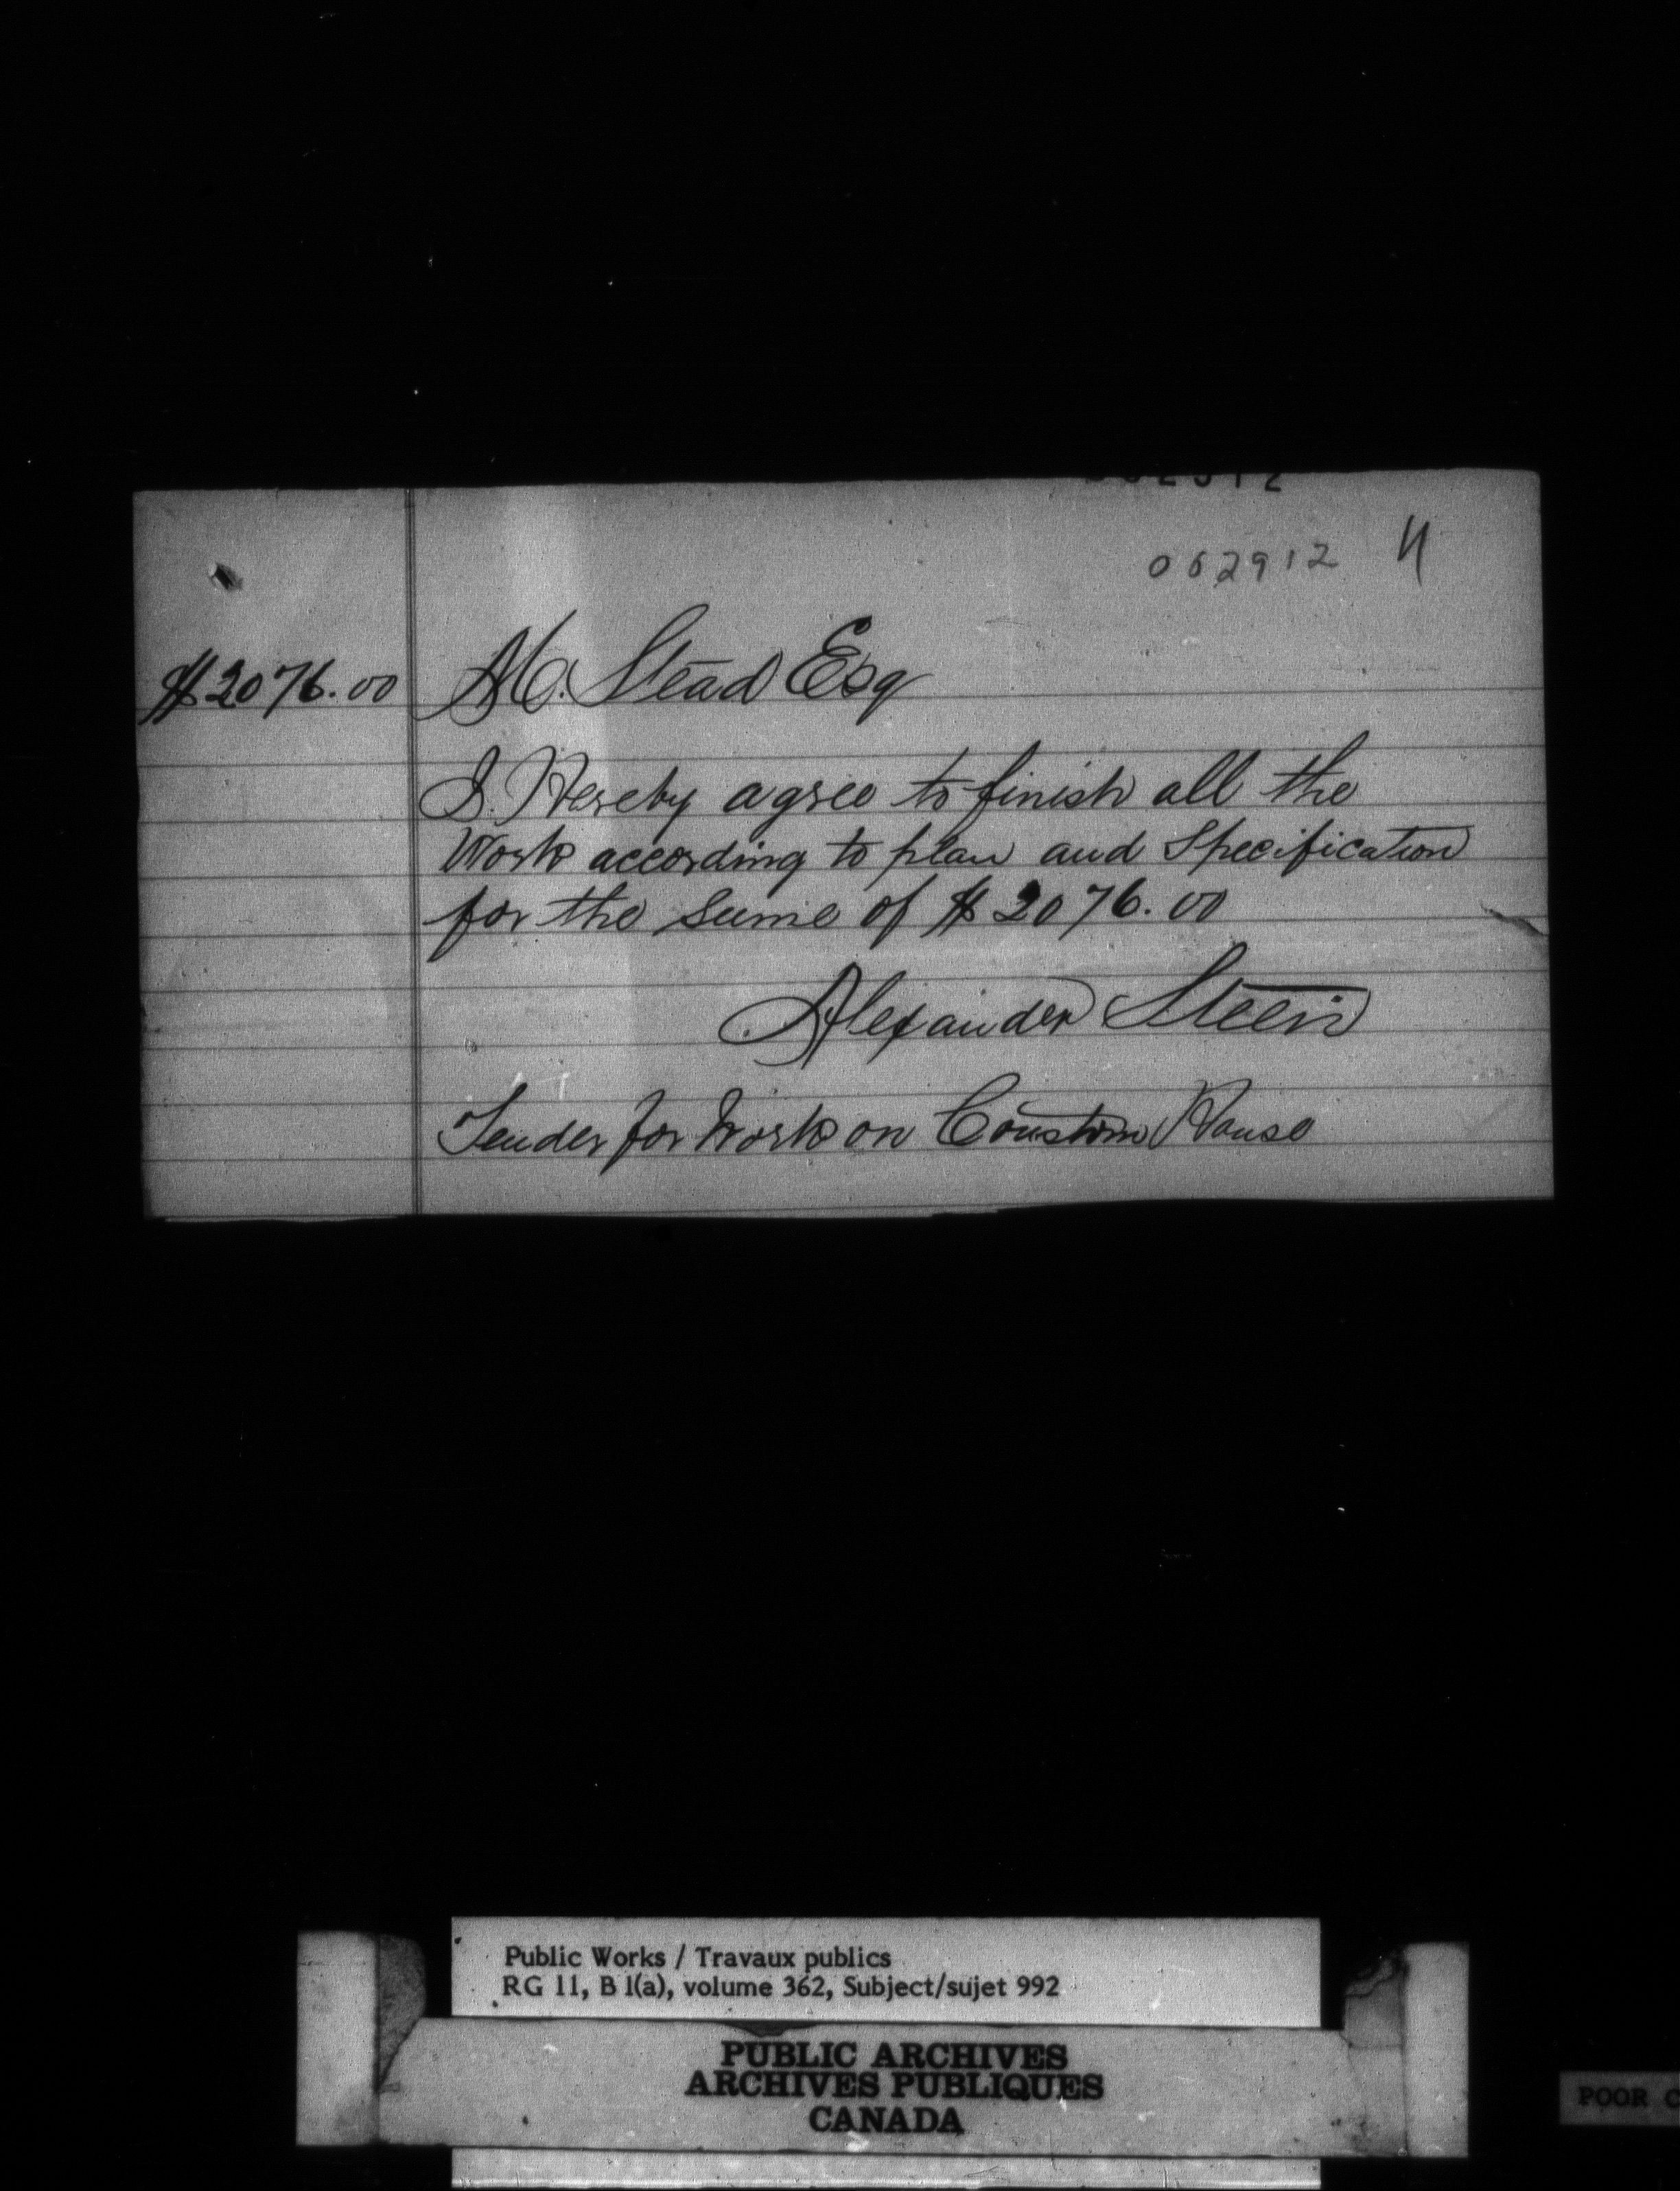 062912 11
$2076.00 M. Stead Esq
I Hereby agree to finish all the
Work according to plan and Specification
for the sume of $2076.00
Alexander Steen
Tender for Work on Coustom House
Public Works / Travaux publics
RG 11, B 1(a), volume 362, Subject/sujet 992
PUBLIC ARCHIVES
ARCHIVES PUBLIQUES
CANADA
POOR